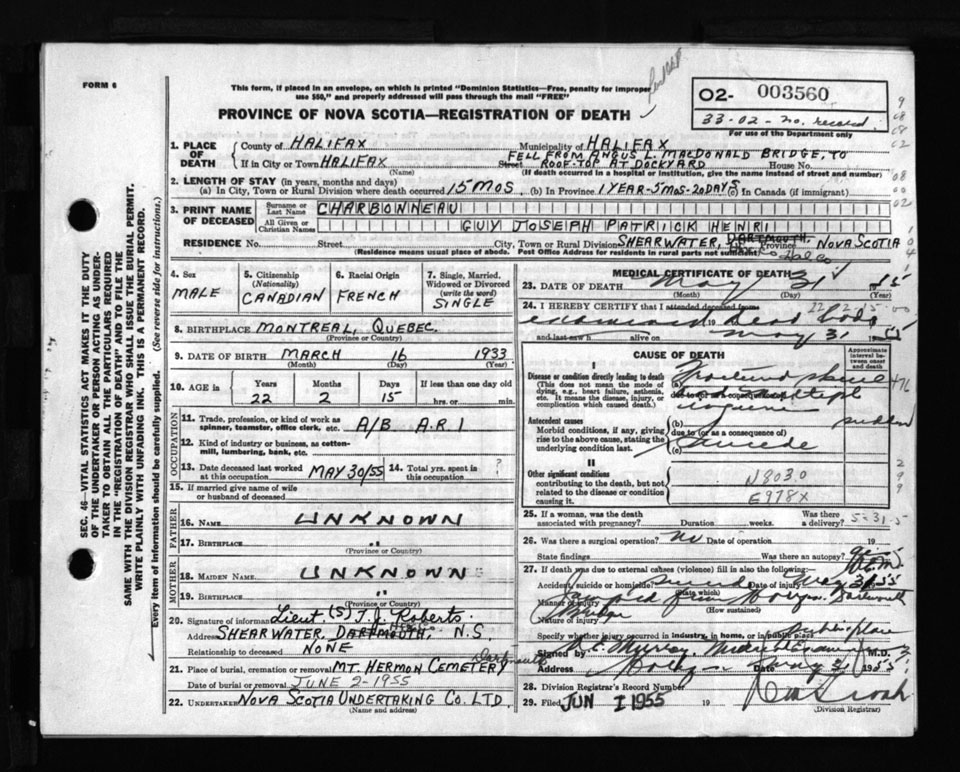 FORM 6
This form, if placed in an envelope, on which is printed "Dominion Statistics—Free, penalty for improper
use $50," and properly addressed will pass through the mail "FREE"
PROVINCE OF NOVA SCOTIA—REGISTRATION OF DEATH
02- 003560
33-02-no. record
For use of the Department only
1. PLACE OF DEATH
County of HALIFAX Municipality of HALIFAX
If in City or Town HALIFAX (Name)
Street FELL FROM ANGUS L. MACDONALD BRIDGE, TO
ROOF-TOP AT DOCKYARD House No.
(If death occurred in a hospital or institution, give the name instead of street and number)
2. LENGTH OF STAY (in years, months and days)
(a) In City, Town or Rural Division where death occurred 15 MOS (b) In Province 1 YEAR-5 MOS-20 DAYS (c) In Canada (if immigrant)
3. PRINT NAME OF DECEASED
Surname or Last Name CHARBONNEAU
All Given or Christian Names GUY JOSEPH PATRICK HENRI
RESIDENCE No. Street City, Town or Rural Division SHEARWATER, DARTMOUTH, NOVA SCOTIA
(Residence means usual place of abode. Post Office Address for residents in rural parts not sufficient) Hal Co
4. Sex MALE
5. Citizenship (Nationality) CANADIAN
6. Racial Origin FRENCH
7. Single, Married, Widowed or Divorced (write the word) SINGLE
8. BIRTHPLACE MONTREAL, QUEBEC.
(Province or Country)
9. DATE OF BIRTH MARCH 16 1933
(Month) (Day) (Year)
10. AGE in Years 22 Months 2 Days 15 If less than one day old hrs. or min.
OCCUPATION
11. Trade, profession, or kind of work as spinner, teamster, office clerk, etc. A/B A.R.1
12. Kind of industry or business, as cotton-mill, lumbering, bank, etc.
13. Date deceased last worked at this occupation MAY 30/55
14. Total yrs. spent in this occupation ?
15. If married give name of wife or husband of deceased
FATHER
16. NAME UNKNOWN
17. BIRTHPLACE "
(Province or Country)
MOTHER
18. MAIDEN NAME UNKNOWN
19. BIRTHPLACE "
(Province or Country)
20. Signature of informant Lieut (S) T. J. Roberts.
Address SHEARWATER, DARTMOUTH, N.S.
Relationship to deceased NONE
21. Place of burial, cremation or removal MT. HERMON CEMETERY Dartmouth
Date of burial or removal JUNE 2-1955
22. UNDERTAKER NOVA SCOTIA UNDERTAKING CO. LTD.
(Name and address)
MEDICAL CERTIFICATE OF DEATH
23. DATE OF DEATH May 31 55
(Month) (Day) (Year)
24. I HEREBY CERTIFY that I attended deceased from
examined 19 dead body
and last saw h alive on May 31 1955
CAUSE OF DEATH
Approximate interval between onset and death
I
Disease or condition directly leading to death
(This does not mean the mode of dying, e.g., heart failure, asthenia, etc. It means the disease, injury, or complication which caused death.)
(a) Fractured skull
due to (or as a consequence of)
Antecedent causes
Morbid conditions, if any, giving rise to the above cause, stating the underlying condition last.
(b) sudden
due to (or as a consequence of)
(c) Suicide
II
Other significant conditions contributing to the death, but not related to the disease or condition causing it.
N803.0
E978X
25. If a woman, was the death associated with pregnancy? Duration weeks. Was there a delivery? 5-31-5
26. Was there a surgical operation? No Date of operation
State findings Was there an autopsy?
27. If death was due to external causes (violence) fill in also the following:
Accident, suicide or homicide? suicide Date of injury May 31 55
(State which)
Manner of injury Jumped from Halifax Dartmouth
(How sustained)
Nature of injury Bridge
Specify whether injury occurred in industry, in home, or in public place
public place
Signed by Murray, Medical Examiner M.D.
Address Halifax Date May 31 1955
28. Division Registrar's Record Number
29. Filed JUN 1 1955 19
(Division Registrar)
SEC. 46—VITAL STATISTICS ACT MAKES IT THE DUTY
OF THE UNDERTAKER OR PERSON ACTING AS UNDER-
TAKER TO OBTAIN ALL THE PARTICULARS REQUIRED
IN THE "REGISTRATION OF DEATH" AND TO FILE THE
SAME WITH THE DIVISION REGISTRAR WHO SHALL ISSUE THE BURIAL PERMIT.
WRITE PLAINLY WITH UNFADING INK. THIS IS A PERMANENT RECORD.
Every item of information should be carefully supplied. (See reverse side for instructions.)